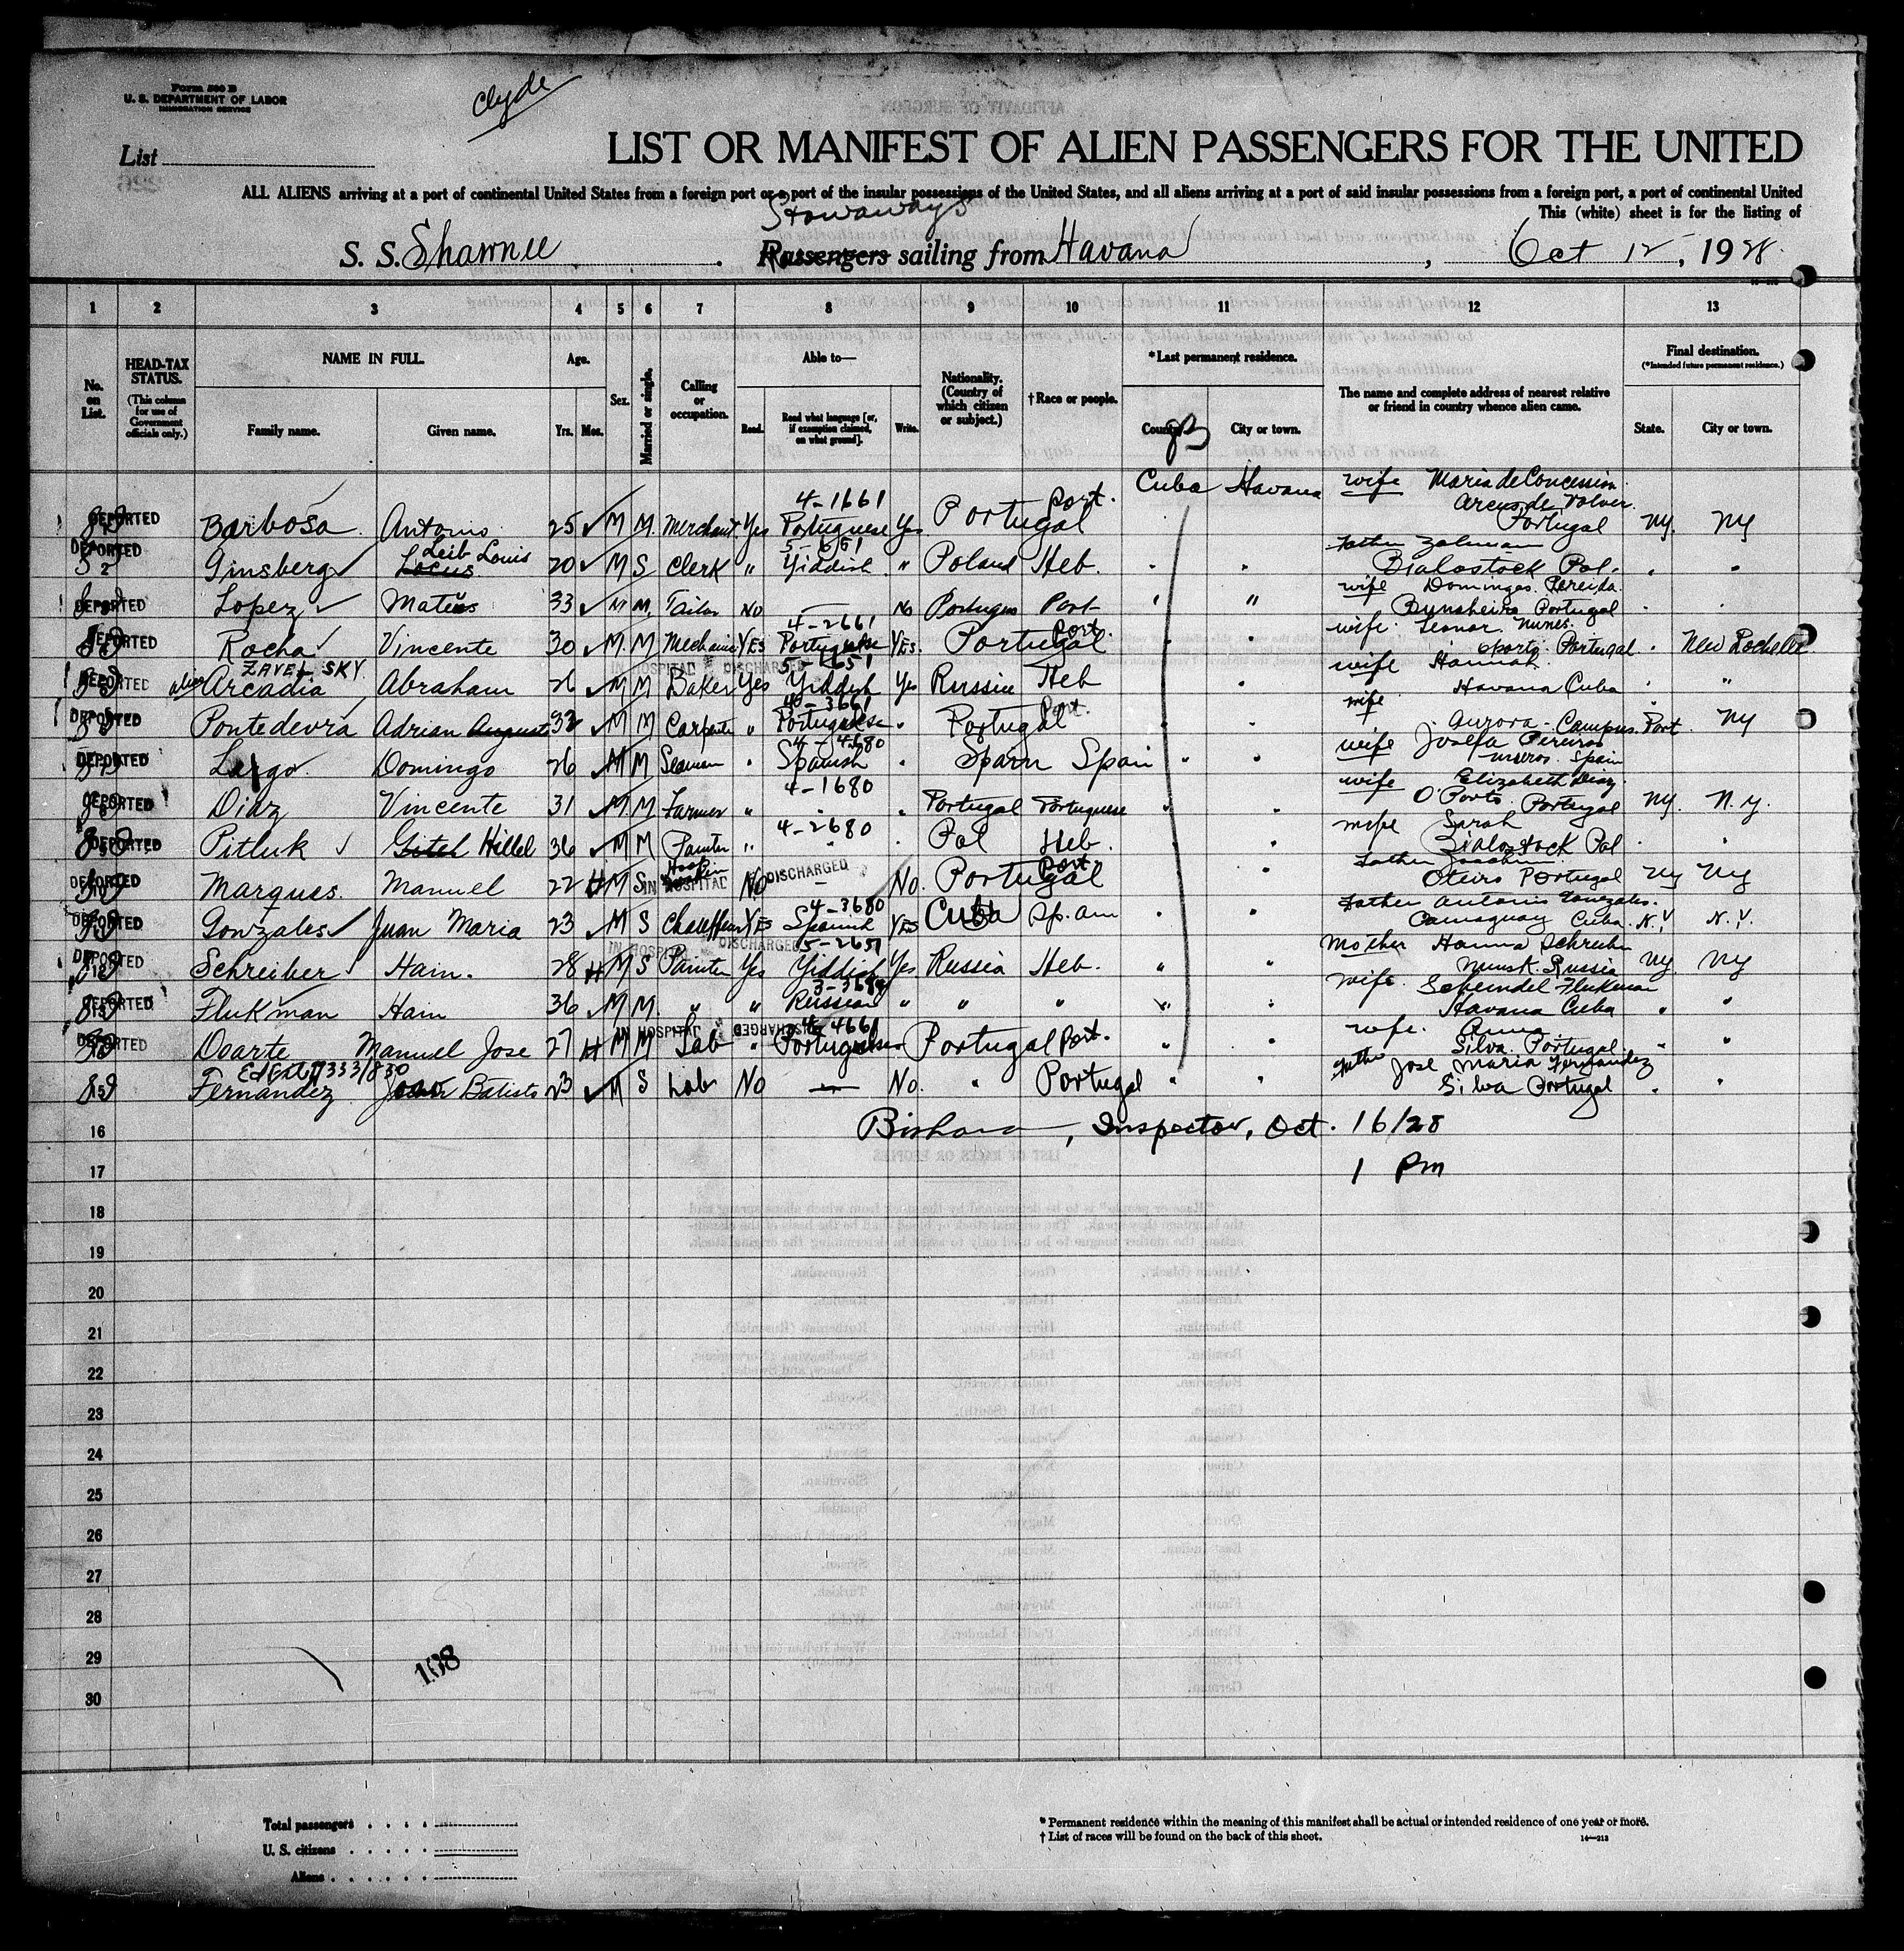 Form 500 B
U. S. DEPARTMENT OF LABOR
IMMIGRATION SERVICE
Clyde
List
LIST OR MANIFEST OF ALIEN PASSENGERS FOR THE UNITED
ALL ALIENS arriving at a port of continental United States from a foreign port or a port of the insular possessions of the United States, and all aliens arriving at a port of said insular possessions from a foreign port, a port of continental United
This (white) sheet is for the listing of
Stowaways
S. S. Shawnee Passengers sailing from Havana, Oct 12, 1928
1 2 3 4 5 6 7 8 9 10 11 12 13
No. on List.
HEAD-TAX STATUS.
(This column for use of Government officials only.)
NAME IN FULL.
Family name. Given name.
Age.
Yrs. Mos.
Sex.
Married or single.
Calling or occupation.
Able to—
Read. Read what language [or, if exemption claimed, on what ground]. Write.
Nationality. (Country of which citizen or subject.)
† Race or people.
*Last permanent residence.
Country. City or town.
The name and complete address of nearest relative or friend in country whence alien came.
Final destination.
(*Intended future permanent residence.)
State. City or town.
4-1661 Port. Cuba Havana wife Maria de Concession
DEPORTED Barbosa Antonio 25 M M Merchant Yes Portuguese Yes Portugal Portugal NY. NY
Leib Louis 5-6151 father Zalman
DEPORTED 2 Ginsberg Locus 20 M S Clerk " Yiddish " Poland Heb. " " Bialostock Pol. " "
wife Domingas Pereida
DEPORTED Lopez Matias 33 M M. Tailor No — No Portugues Port " " Portugal
4-2661 Port. wife Leonor Nunes.
DEPORTED Rocha Vincente 30 M. M Mechanic YES Portuguese YES. Portugal " " Oporto Portugal. " New Rochelle
ZAVEL SKY IN HOSPITAL DISCHARGED 5-1651 wife Hannah
DEPORTED alias Arcadia Abraham 26 M M Baker Yes Yiddish Yes Russia Heb " Havana Cuba " "
4-3661 Port. wife
DEPORTED Pontedevra Adrian August 32 M M Carpenter " Portuguese " Portugal Aurora - Campus. Port NY
4-4680 wife Josefa Pereiros
DEPORTED Largo Domingo 26 M M Seaman " Spanish " Spain Spain " " Spain
4-1680 wife Elizabeth Diaz
DEPORTED Diaz Vincente 31 M. M. Farmer " " " Portugal Portuguese " " O'Porto Portugal NY. N.Y.
4-2680 wife Sarah
DEPORTED Pitluk Gitel Hillel 36 M M Painter " " " Pol Heb. " Bialostock Pol " "
IN HOSPITAL DISCHARGED Port. father Joachim
DEPORTED Marques. Manuel 22 M S No — No. Portugal " Oteiro Portugal NY NY
4-3680 father Antonio Gonzales.
DEPORTED Gonzales Juan Maria 23 M S Chauffeur YES Spanish YES Cuba Sp. am " " Camaguay Cuba. N.Y N.Y.
IN HOSPITAL DISCHARGED 5-2651 Mother Hanna Schreiber
DEPORTED Schreiber Hain. 28 M S Painter Yes Yiddish Yes Russia Heb. " " Minsk. Russia NY NY
wife. Scheindel Flukman
DEPORTED Flukman Hain 36 M M. " " Russian " " " " " Havana Cuba " "
IN HOSPITAL DISCHARGED 4-4661 wife. Anna
DEPORTED Doarte Manuel Jose 27 M M Lab " Portuguese Portugal Port. " " Silva. Portugal. " "
father Jose Maria Fernandez
Fernandez Joao Batista 23 M S Lab No — No. " Portugal " " Silva Portugal " "
16 , Inspector, Oct. 16/28
17 1 Pm
18
19
20
21
22
23
24
25
26
27
28
29
108
30
Total passengers
U. S. citizens
Aliens
* Permanent residence within the meaning of this manifest shall be actual or intended residence of one year or more.
† List of races will be found on the back of this sheet.
14—213